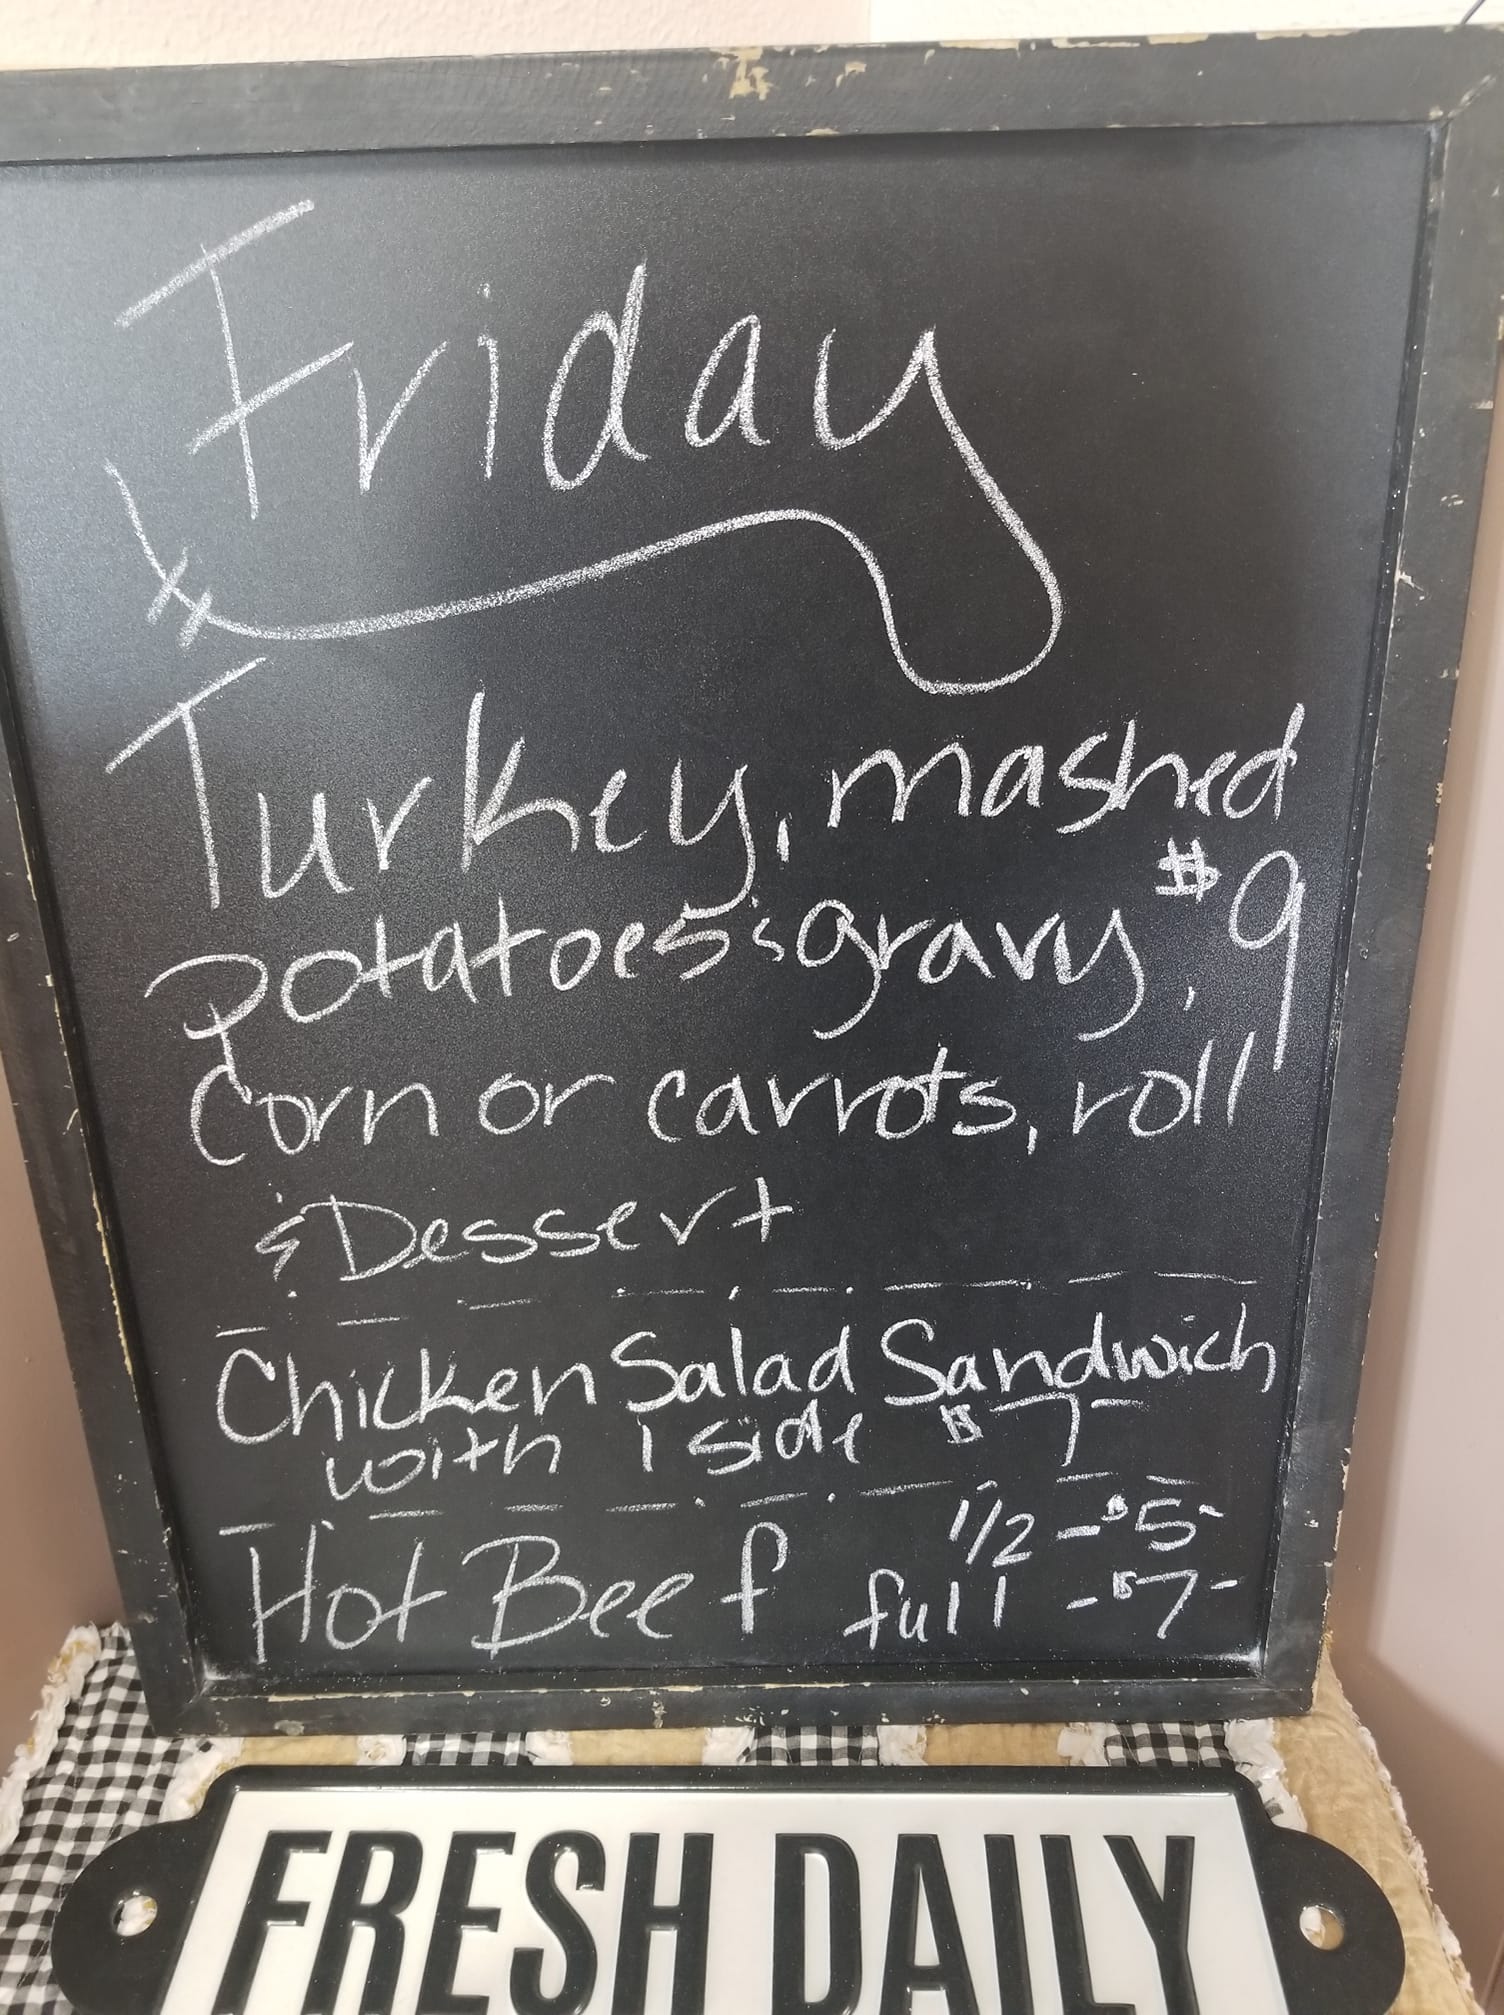 Friday
Turkey, mashed
potatoes & gravy, $9
Corn or carrots, roll
& Dessert
Chicken Salad Sandwich
with 1 side $7-
Hot Beef 1/2 - $5-
full - $7-
FRESH DAILY